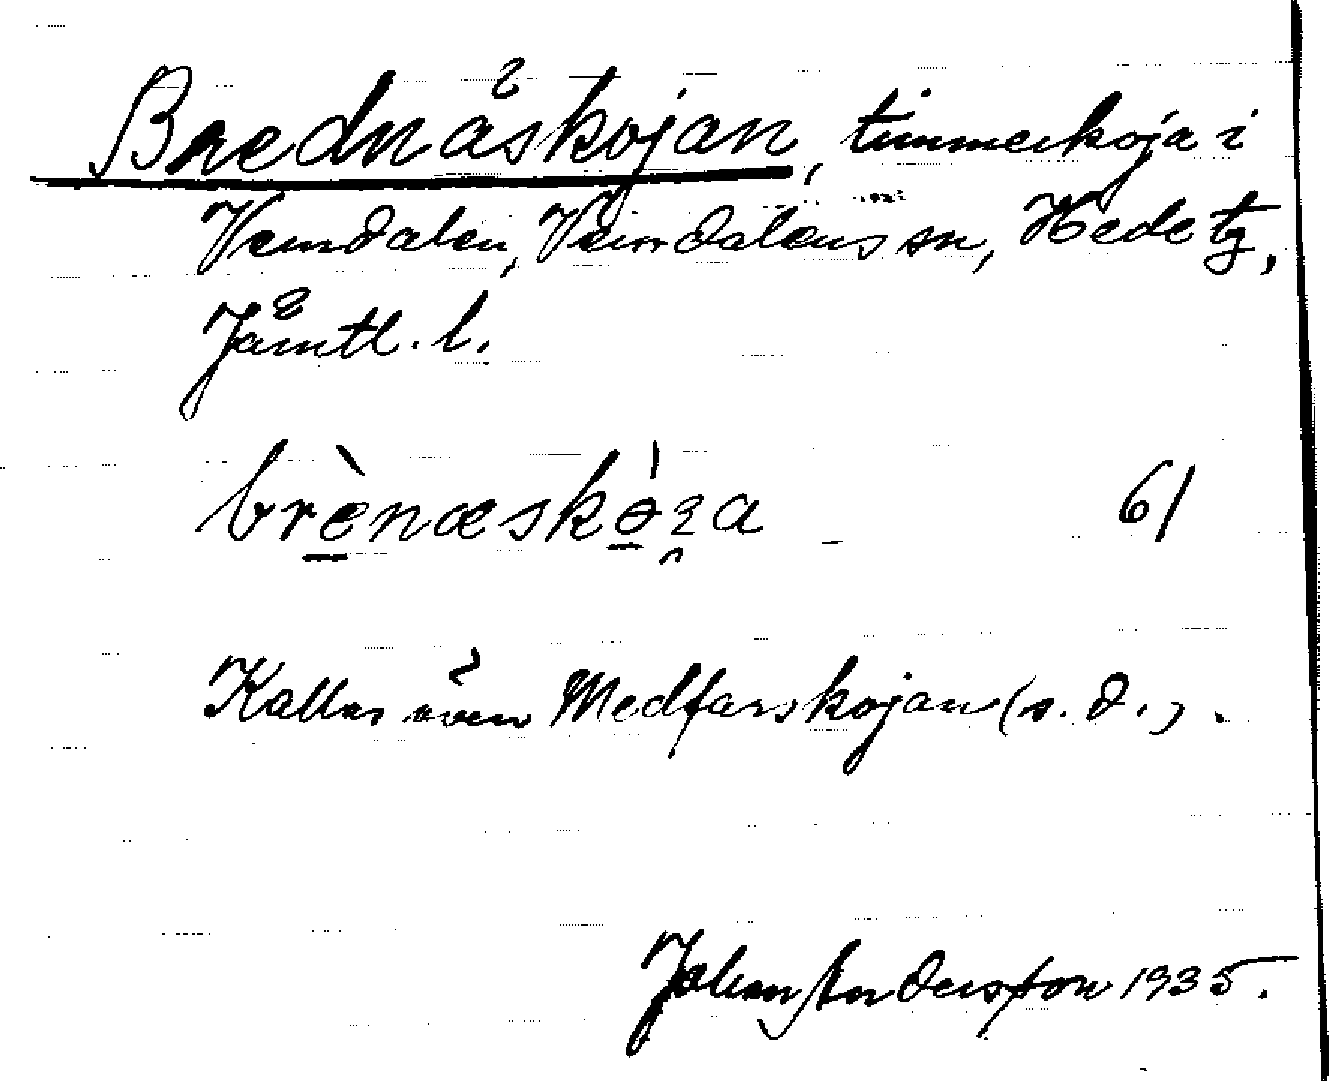 Brednäskojan, timmerkoja i
Vemdalen, Vemdalens sn, Hede tg,
Jämtl. l.
brènæskò̱ʒa 61
Kallas även Medfarskojan (s. d.).
Johan Andersson 1935.